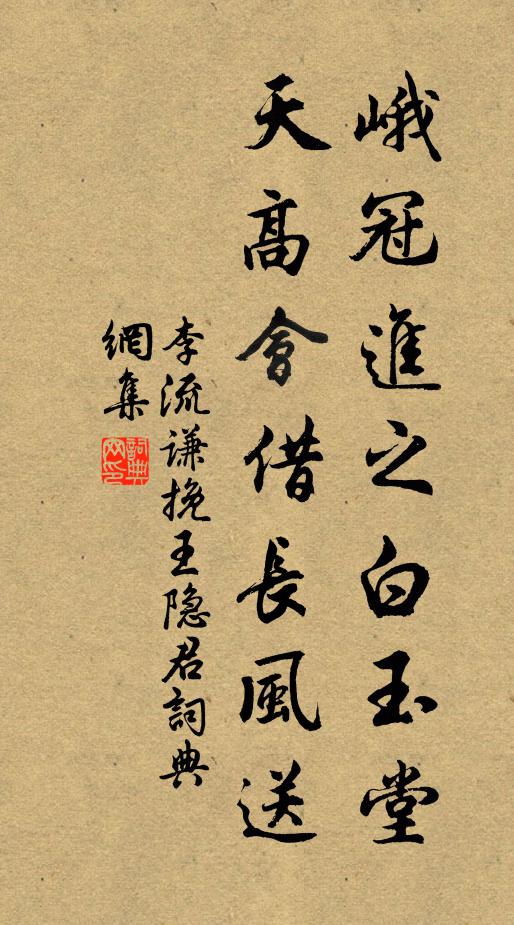 峨冠進之白玉堂
天高會借長風送
李流谦挽王隐君詞典
網集
詞典網印